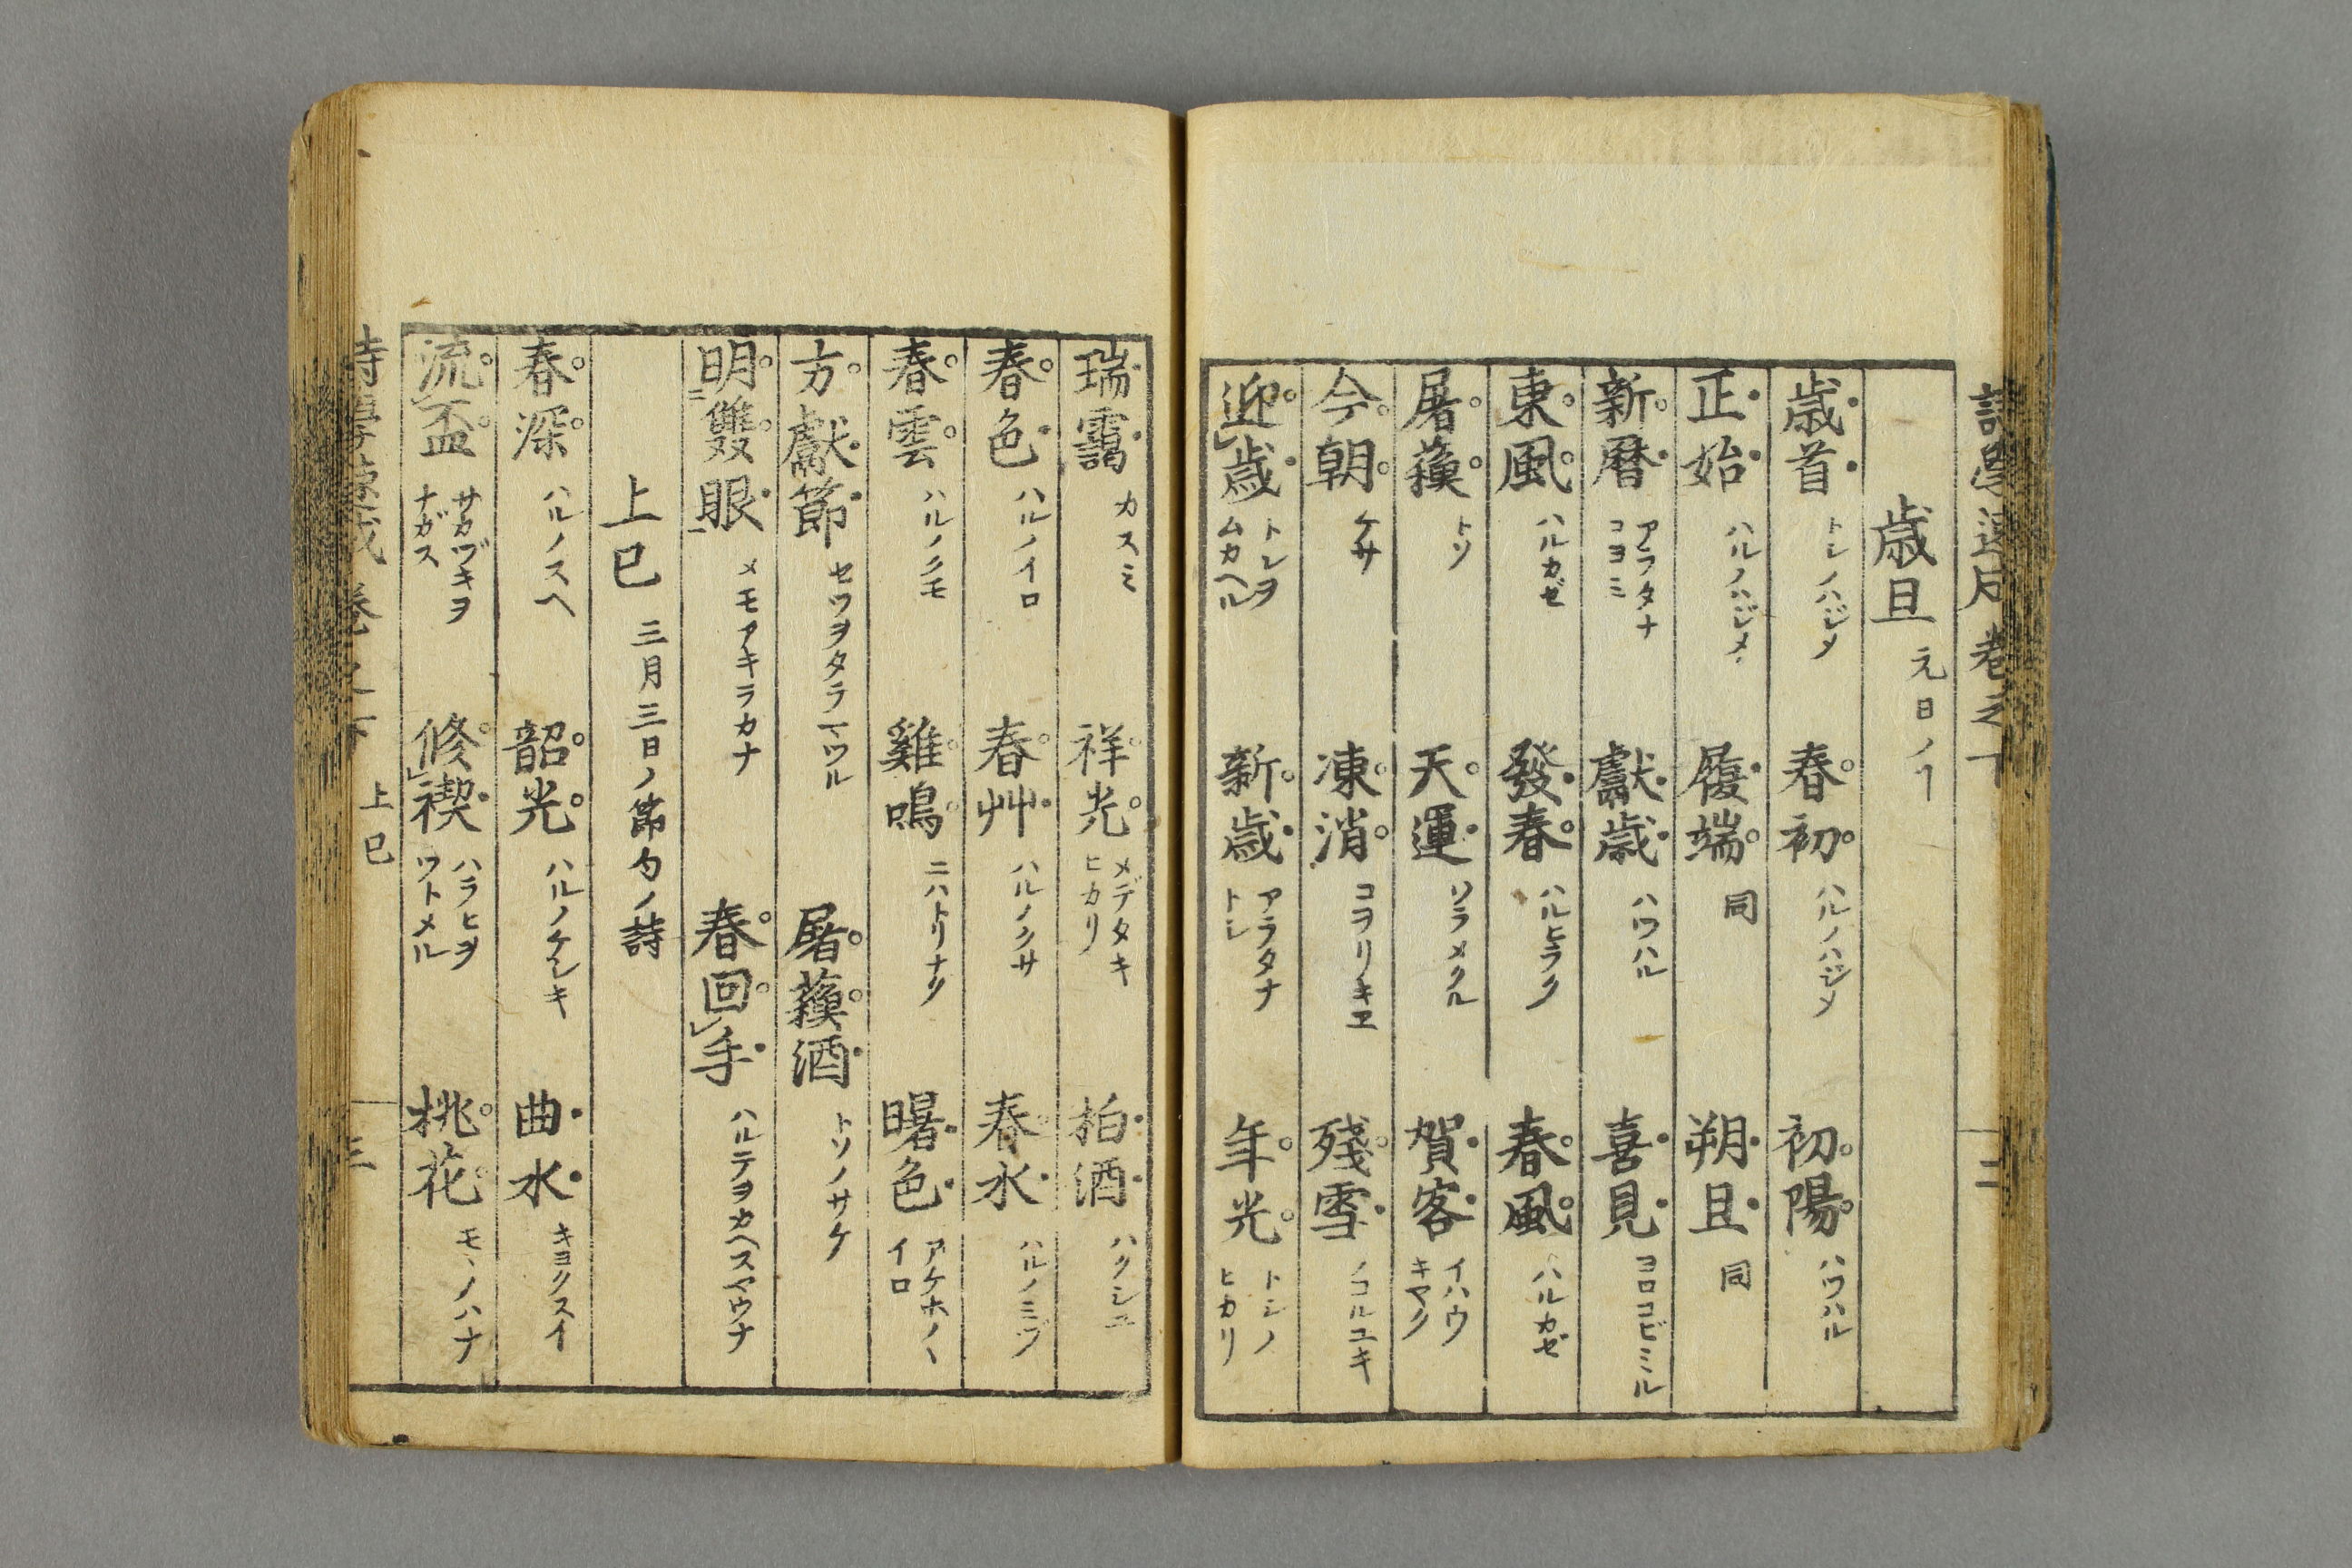 歳旦 元日ノヿ
歳首 トシノハジメ 春初 ハルノハジメ 初陽 ハツハル
正始 ハルノハジメ 履端 同 朔旦 同
新暦 アラタナコヨミ 獻歳 ハツハル 喜見 ヨロコビミル
東風 ハルカゼ 發春 ハルヒラク 春風 ハルカゼ
屠蘓 トソ 天運 ソラメクル 賀客 イハウキヤク
今朝 ケサ 凍消 コヲリキヱ 殘雪 ノコルユキ
迎歳 トシヲムカヘル 新歳 アラタナトシ 年光 トシノヒカリ
瑞靄 カスミ 祥光 メデタキヒカリ 柏酒 ハクシユ
春色 ハルノイロ 春艸 ハルノクサ 春水 ハルノミヅ
春雲 ハルノクモ 雞鳴 ニハトリナク 曙色 アケホノヽイロ
方獻節 セツヲタテマツル 屠蘓酒 トソノサケ
明雙眼 メモアキラカナ 春回手 ハルテヲカヘスヤウナ
上巳 三月三日ノ節句ノ詩
春深 ハルノスヘ 韶光 ハルノケシキ 曲水 キヨクスイ
流盃 サカヅキヲナガス 修禊 ハラヒヲツトメル 桃花 モヽノハナ
上巳